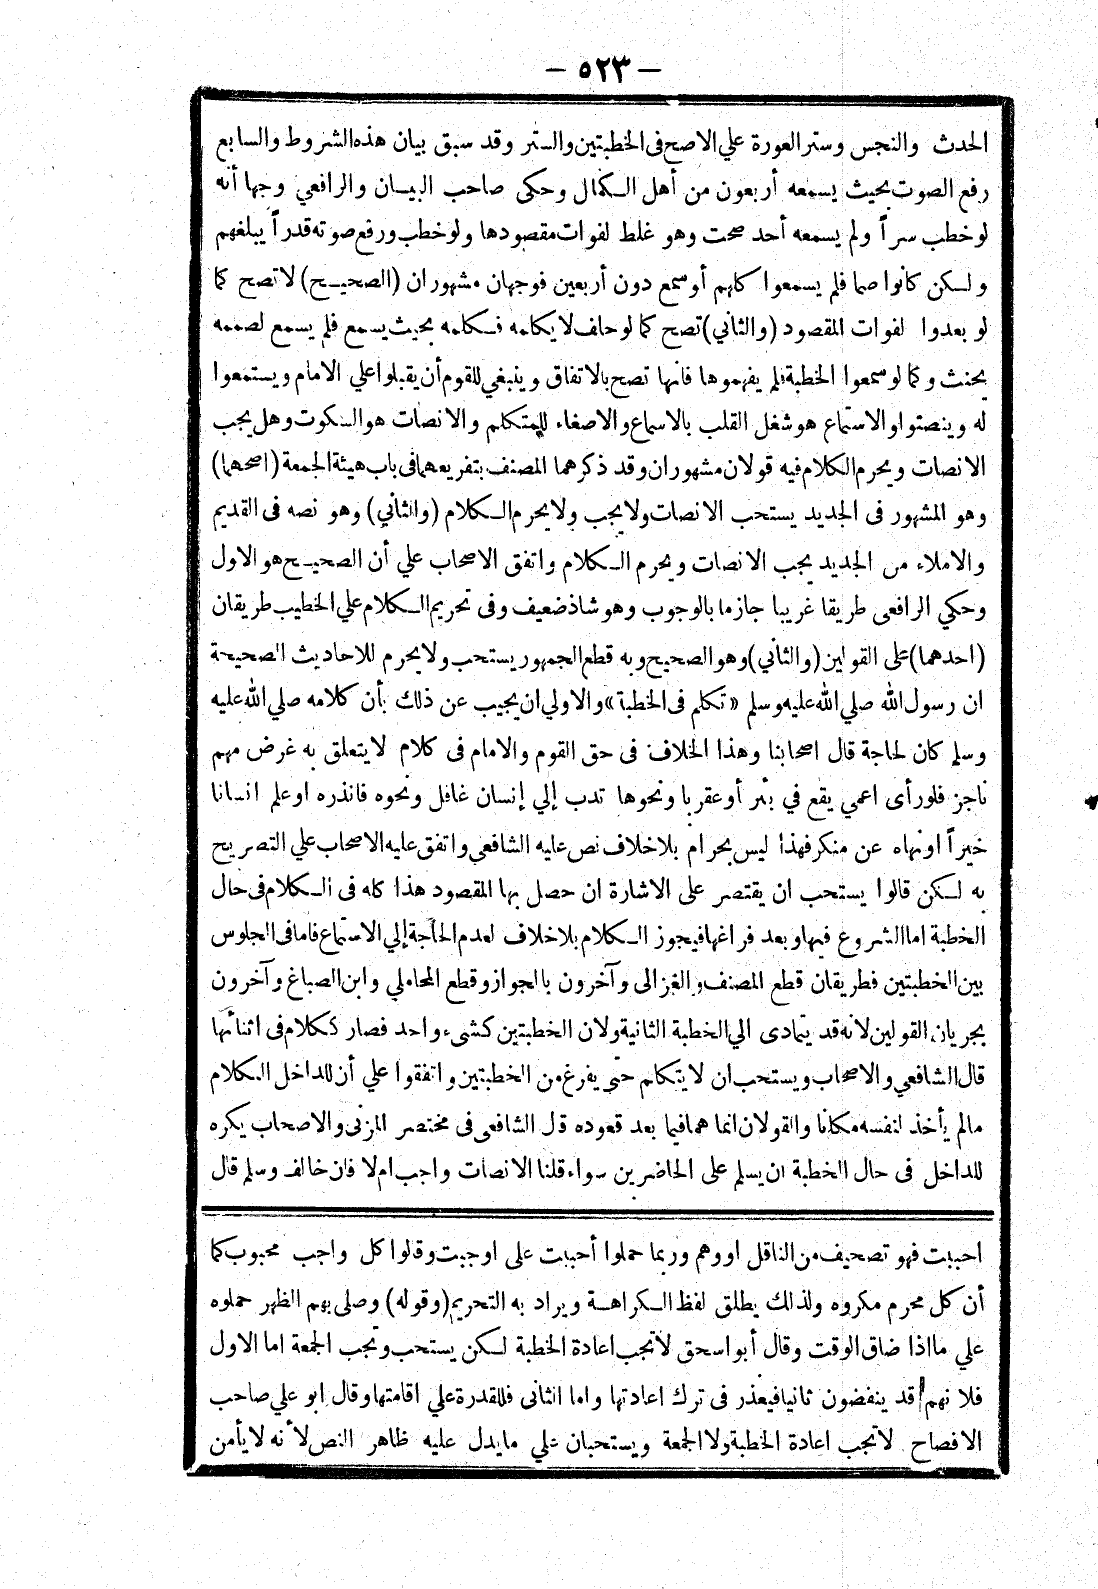 — ٥٢٣ —
الحدث والنجس وستر العورة علي الاصح فى الخطبتين والستر وقد سبق بيان هذه الشروط والسابع
رفع الصوت بحيث يسمعه أربعون من أهل الـكمال وحكى صاحب البيـان والرافعي وجها أنه
لو خطب سراً ولم يسمعه أحد صحت وهو غلط لفوات مقصودها ولو خطب ورفع صوته قدراً يبلغهم
ولـكن كانوا صما فلم يسمعوا كلهم أو سمع دون أربعين فوجهان مشهوران (الصحيـح) لا تصح كما
لو بعدوا لفوات المقصود (والثاني) تصح كما لو حلف لا يكلمه فـكلمه بحيث يسمع فلم يسمع لصممه
يحنث وكما لو سمعوا الخطبة فلم يفهموها فانها تصح بالاتفاق وينبغي للقوم أن يقبلوا علي الامام ويستمعوا
له وينصتوا والاستماع هو شغل القلب بالاسماع والاصغاء للمتكلم والانصات هو السكوت وهل يجب
الانصات ويحرم الكلام فيه قولان مشهوران وقد ذكرهما المصنف بتفريعهما فى باب هيئة الجمعة (اصحهما)
وهو المشهور فى الجديد يستحب الانصات ولا يجب ولا يحرم الـكلام (والثاني) وهو نصه فى القديم
والاملاء من الجديد يجب الانصات ويحرم الـكلام واتفق الاصحاب علي أن الصحيـح هو الاول
وحكي الرافعى طريقا غريبا جازما بالوجوب وهو شاذ ضعيف وفى تحريم الـكلام علي الخطيب طريقان
(احدهما) على القولين (والثاني) وهو الصحيح وبه قطع الجمهور يستحب ولا يحرم للاحاديث الصحيحة
ان رسول الله صلي الله عليه وسلم «تكلم فى الخطبة» والاولي ان يجيب عن ذلك بأن كلامه صلي الله عليه
وسلم كان لحاجة قال اصحابنا وهذا الخلاف فى حق القوم والامام فى كلام لا يتعلق به غرض مهم
ناجز فلو رأى اعمي يقع في بئر أو عقربا ونحوها تدب إلي إنسان غافل ونحوه فانذره او علم انسانا
خيراً او نهاه عن منكر فهذا ليس بحرام بلاخلاف نص عليه الشافعي واتفق عليه الاصحاب علي التصريح
به لـكن قالوا يستحب ان يقتصر على الاشارة ان حصل بها المقصود هذا كله فى الـكلام فى حال
الخطبة اما الشروع فيها وبعد فراغها فيجوز الـكلام بلا خلاف لعدم الحاجة إلي الاستماع فاما فى الجلوس
بين الخطبتين فطريقان قطع المصنف والغزالى وآخرون بالجواز وقطع المحاملي وابن الصباغ وآخرون
بجريان القولين لانه قد يتمادى الي الخطبة الثانية ولان الخطبتين كشىء واحد فصار ككلام فى اثنائها
قال الشافعي والاصحاب ويستحب ان لا يتكلم حتي يفرغ من الخطبتين واتفقوا علي أن للداخل الـكلام
مالم يأخذ لنفسه مكانا والقولان انما هما فيما بعد قعوده قال الشافعى فى مختصر المزنى والاصحاب يكره
للداخل فى حال الخطبة ان يسلم على الحاضرين سواء قلنا الانصات واجب ام لا فان خالف وسلم قال
احببت فهو تصحيف من الناقل او وهم وربما حملوا أحببت على اوجبت وقالوا كل واجب محبوب كما
أن كل محرم مكروه ولذلك يطلق لفظ الـكراهـة ويراد به التحريم (وقوله) وصلى بهم الظهر حملوه
علي مااذا ضاق الوقت وقال أبو اسحق لاتجب اعادة الخطبة لـكن يستحب وتجب الجمعة اما الاول
فلانهم قد ينفضون ثانيا فيعذر فى ترك اعادتها واما الثانى فللقدرة علي اقامتها وقال ابو علي صاحب
الافصاح لاتجب اعادة الخطبة ولا الجمعة ويستحبان علي مايدل عليه ظاهر النص لأنه لا يأمن